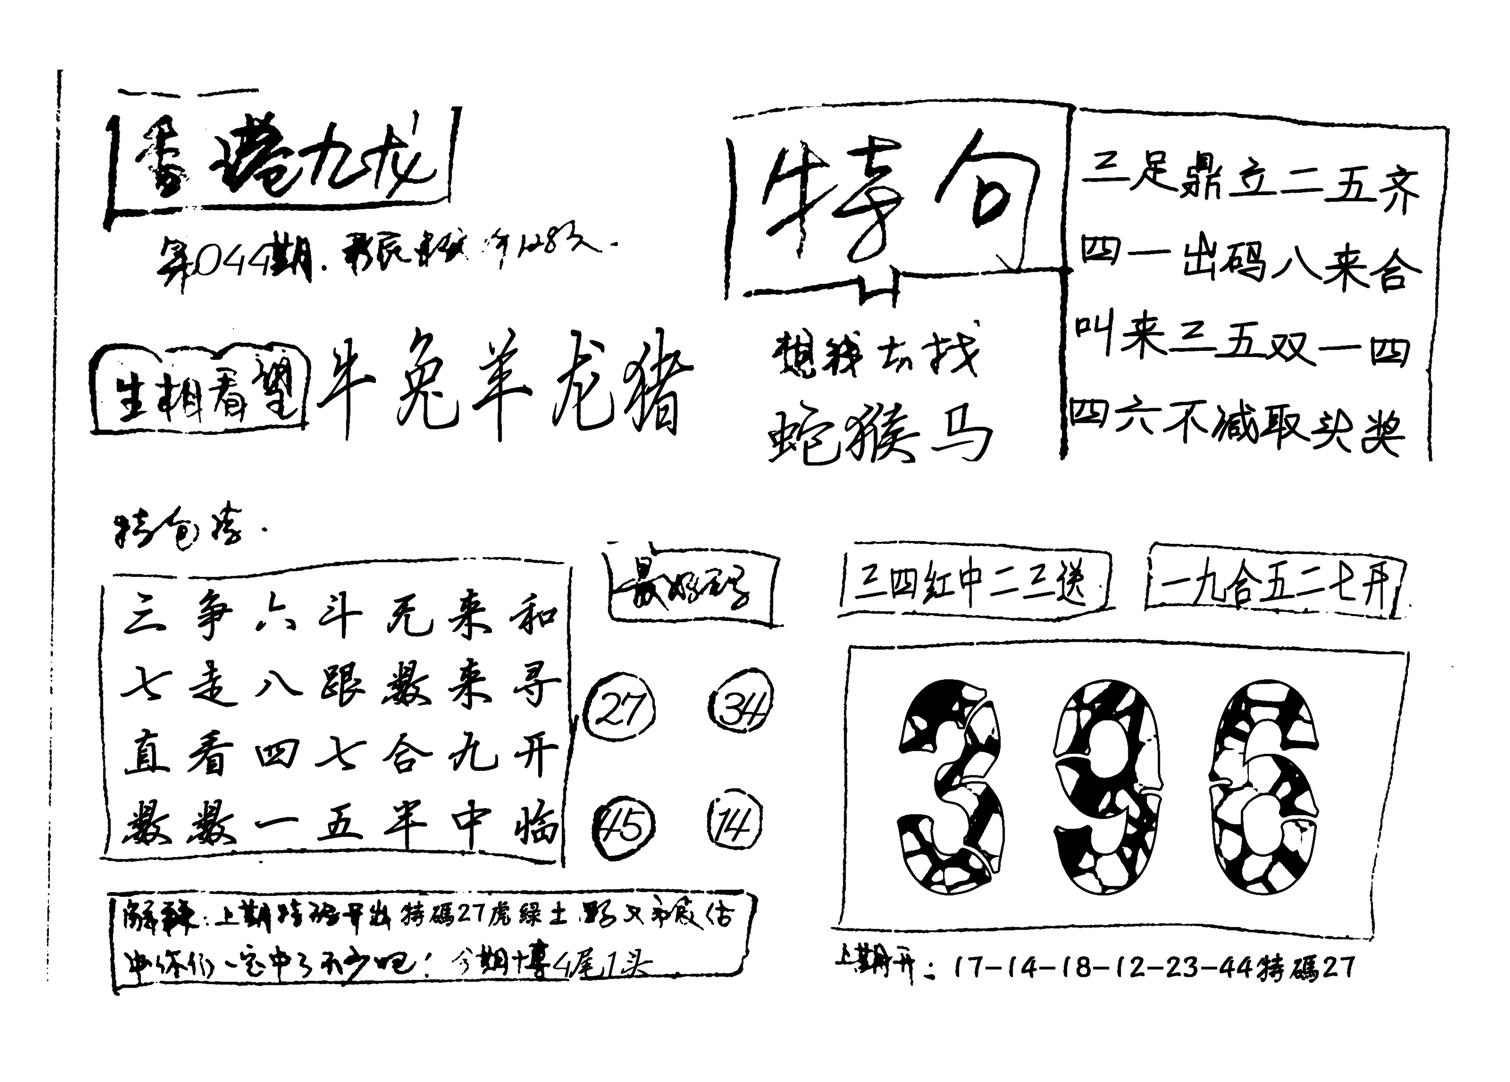 香港九龙
第044期.
生相看望
牛兔羊龙猪
特句
想我去找
蛇猴马
三足鼎立二五齐
四一出码八来合
叫来三五双一四
四六不减取头奖
三争六斗无来和
七走八跟数来寻
直看四七合九开
数数一五半中临
最好码
27
34
45
14
三四红中二三送
一九合五二七开
396
解:上期特码开出特碼27虎綠土
你们一定中了不少吧!今期博4尾1头
上期开:17-14-18-12-23-44特碼27